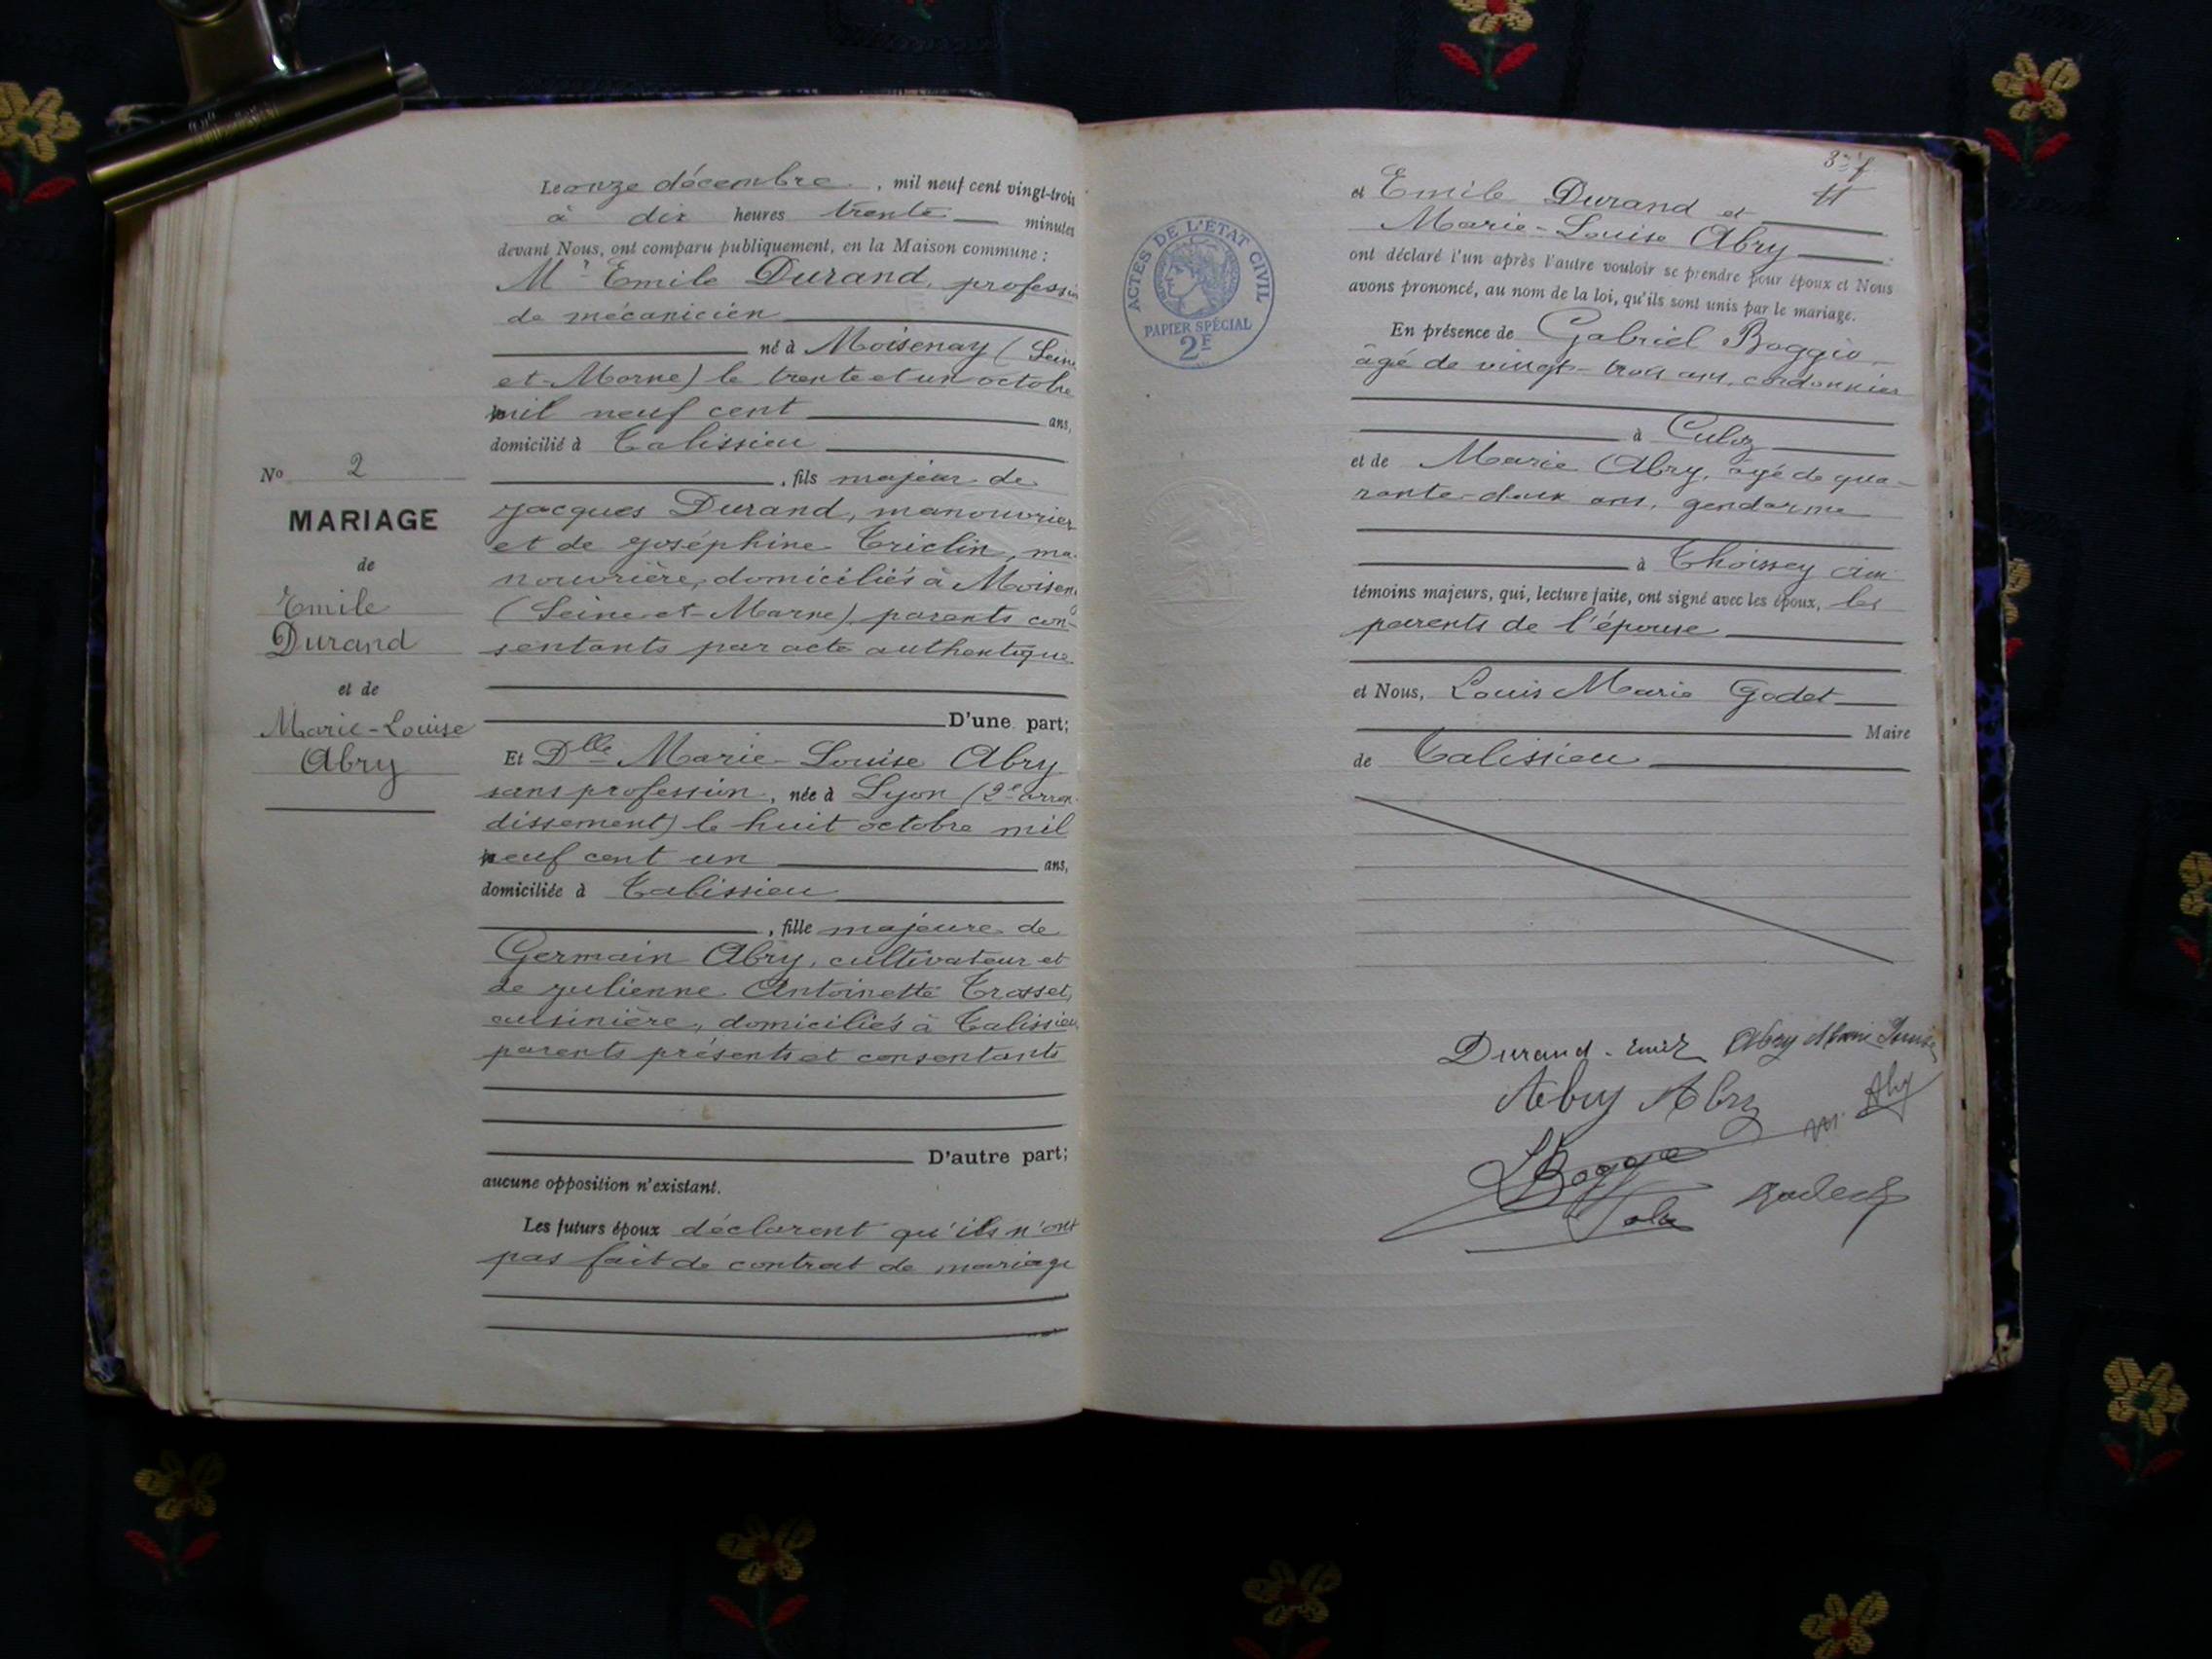 Le onze décembre, mil neuf cent vingt-trois
à dix heures trente minutes
devant Nous, ont comparu publiquement, en la Maison commune :
Mr Emile Durand, profession
de mécanicien
né à Moisenay (Seine
et-Marne) le trente et un octobre
mil neuf cent ans,
domicilié à Talissieu
, fils majeur de
Jacques Durand, manouvrier
et de Joséphine Triclin, ma-
nouvrière, domiciliés à Moisenay
(Seine-et-Marne), parents con-
sentants par acte authentique
D'une part;
Et Dlle Marie-Louise Abry
sans profession, née à Lyon (2e arron-
dissement) le huit octobre mil
neuf cent un ans,
domiciliée à Talissieu
, fille majeure de
Germain Abry, cultivateur et
de Julienne Antoinette Trosset,
cuisinière, domiciliés à Talissieu
parents présents et consentants
D'autre part;
aucune opposition n'existant.
Les futurs époux déclarent qu'ils n'ont
pas fait de contrat de mariage
No 2
MARIAGE
de
Emile
Durand
et de
Marie-Louise
Abry
ACTES DE L'ÉTAT CIVIL
PAPIER SPÉCIAL
2F
et Emile Durand et
Marie-Louise Abry
ont déclaré l'un après l'autre vouloir se prendre pour époux et Nous
avons prononcé, au nom de la loi, qu'ils sont unis par le mariage.
En présence de Gabriel Boggio
âgé de vingt-trois ans, cordonnier
à Culoz
et de Marie Abry, âgé de qua-
rante-deux ans, gendarme
à Thoissey Ain
témoins majeurs, qui, lecture faite, ont signé avec les époux, les
parents de l'épouse
et Nous, Louis Marie Godet
Maire
de Talissieu
Durand Emile Abry Marie Louise
Abry Abry M. Abry
Boggio